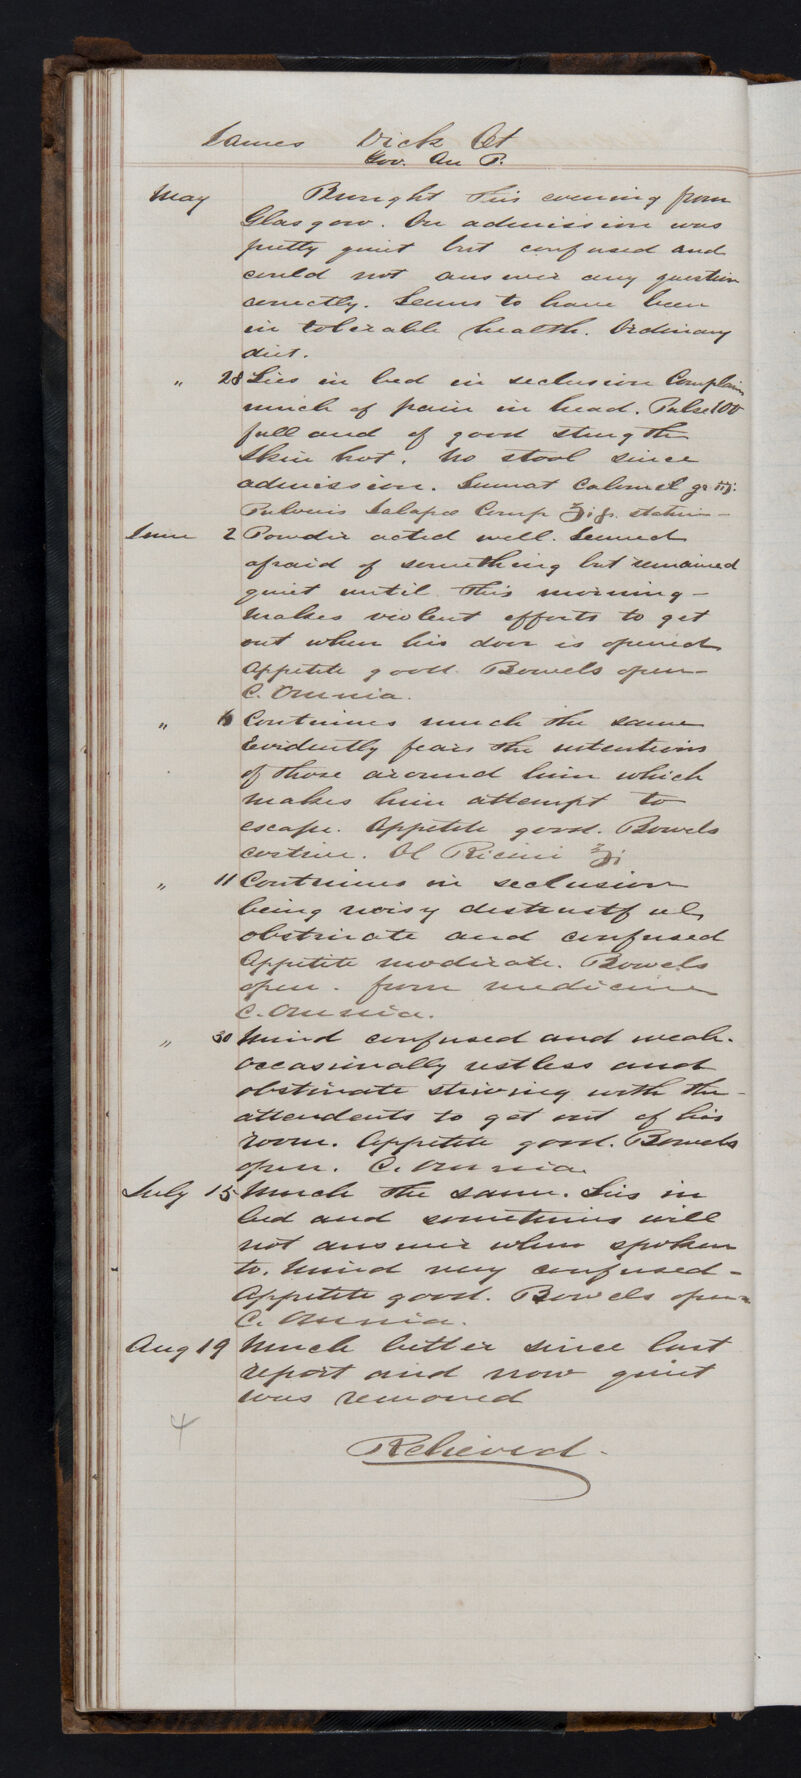 James Dick Æt
Gov. An P.
May Brought this evening from
Glasgow. On admission was
pretty quiet but confused and
could not answer any question
correctly. Seems to have been
in tolerable health. Ordinary
diet.
" 28 Lies in bed in seclusion Complains
much of pain in head. Pulse 100
full and of good strength
Skin hot. No stool since
admission. Sumat Calomel gr iij.
Pulveris Jalapæ Comp ʒiſs. statim -
June 2 Powder acted well. Seemed
afraid of something but remained
quiet until this morning -
Makes violent efforts to get
out when his door is opened
Appetite good. Bowels open -
C. Omnia.
" Continues much the same
Evidently fears the intentions
of those around him which
makes him attempt to
escape. Appetite good. Bowels
costive. Ol Ricini ℥j
" 11 Continues in seclusion
being noisy distrustful
obstinate and confused
Appetite moderate. Bowels
open. from medicine
C. Omnia.
" 30 Mind confused and weak.
Occasionally restless and
obstinate striving with the -
attendents to get out of his
room. Appetite good. Bowels
open. C. Omnia.
July 15 Much the same. Lies in
bed and sometimes will
not answer when spoken
to. Mind very confused -
Appetite good. Bowels open -
C. Omnia.
Aug 19 Much better since last
report and now quiet
was removed
4
Relieved -